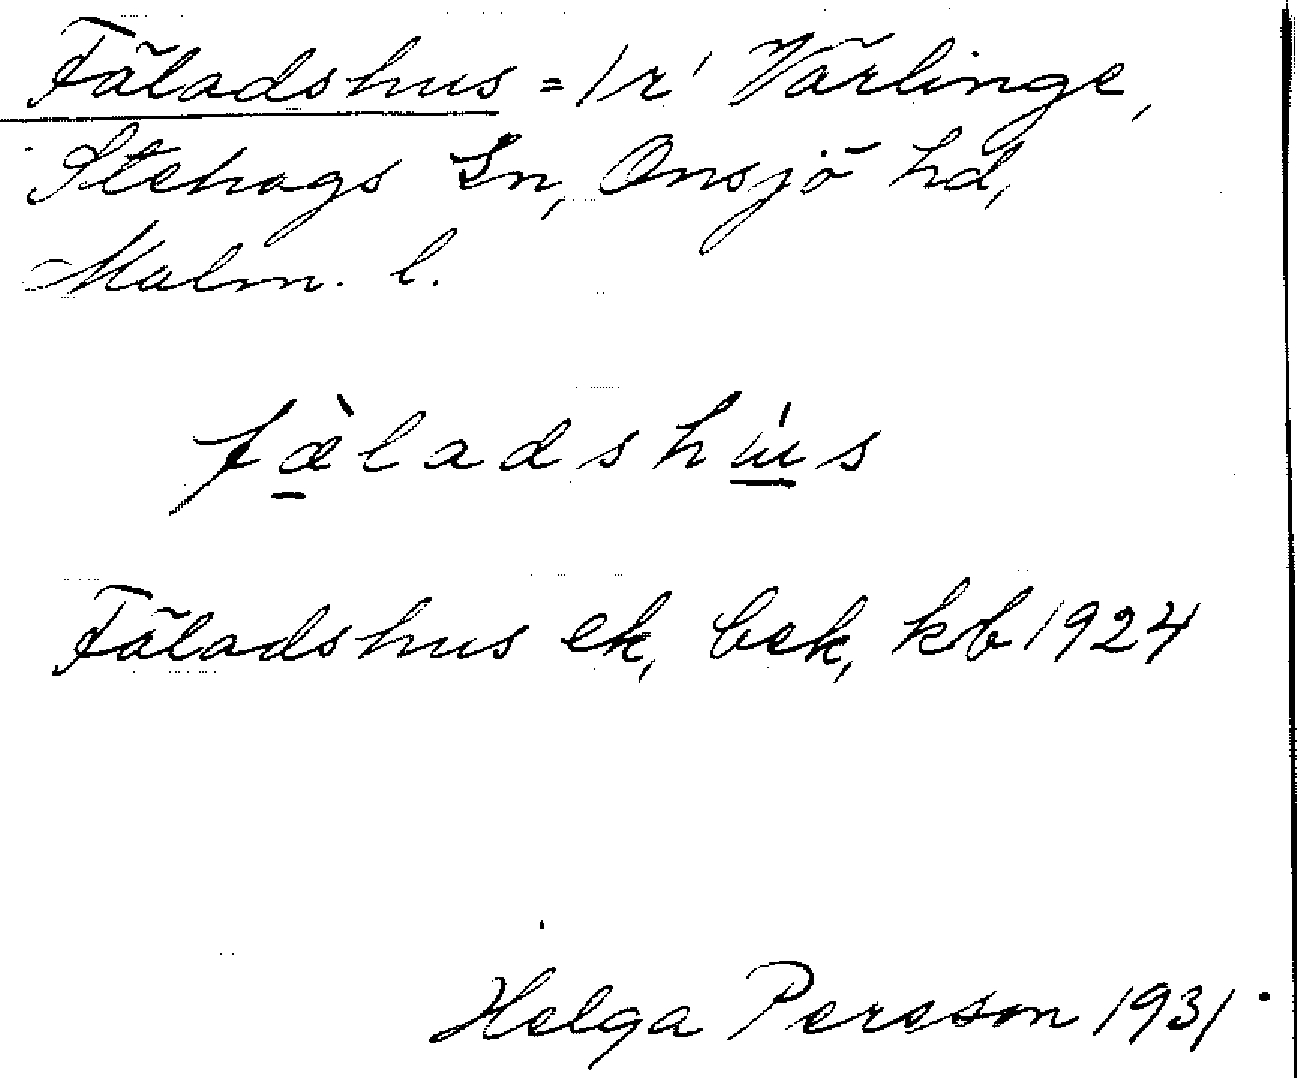 Fäladshus = 1 r' Värlinge,
Stehags Sn, Onsjö hd,
Malm. l.
fæ̀ladshús
Fäladshus ek, bek, kb 1924
Helga Persson 1931.